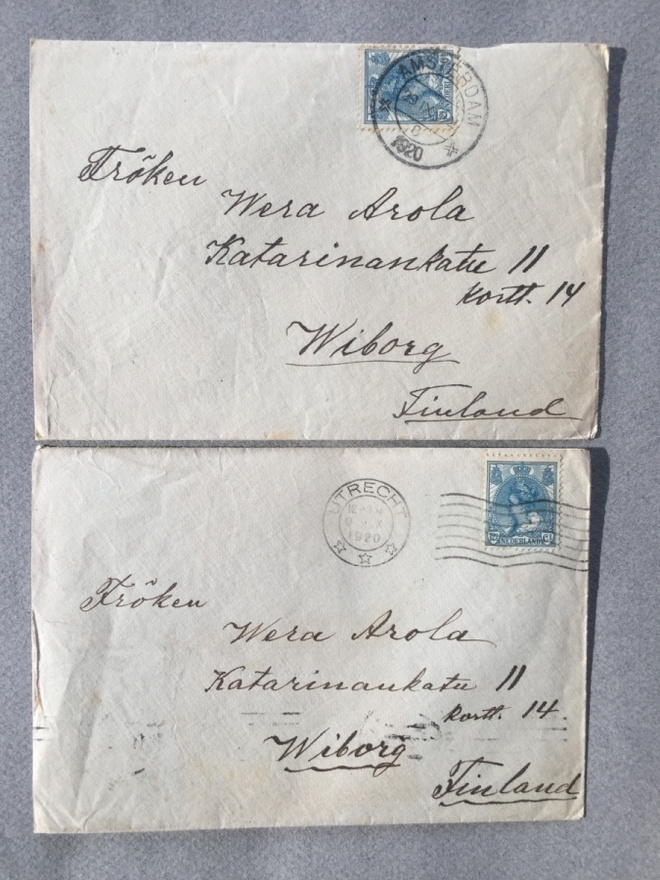 AMSTERDAM
1920
Fröken
Wera Arola
Katarinankatu 11
Kortt. 14
Wiborg
Finland
UTRECHT
1920
NEDERLAND
Fröken
Wera Arola
Katarinankatu 11
Kortt. 14.
Wiborg
Finland